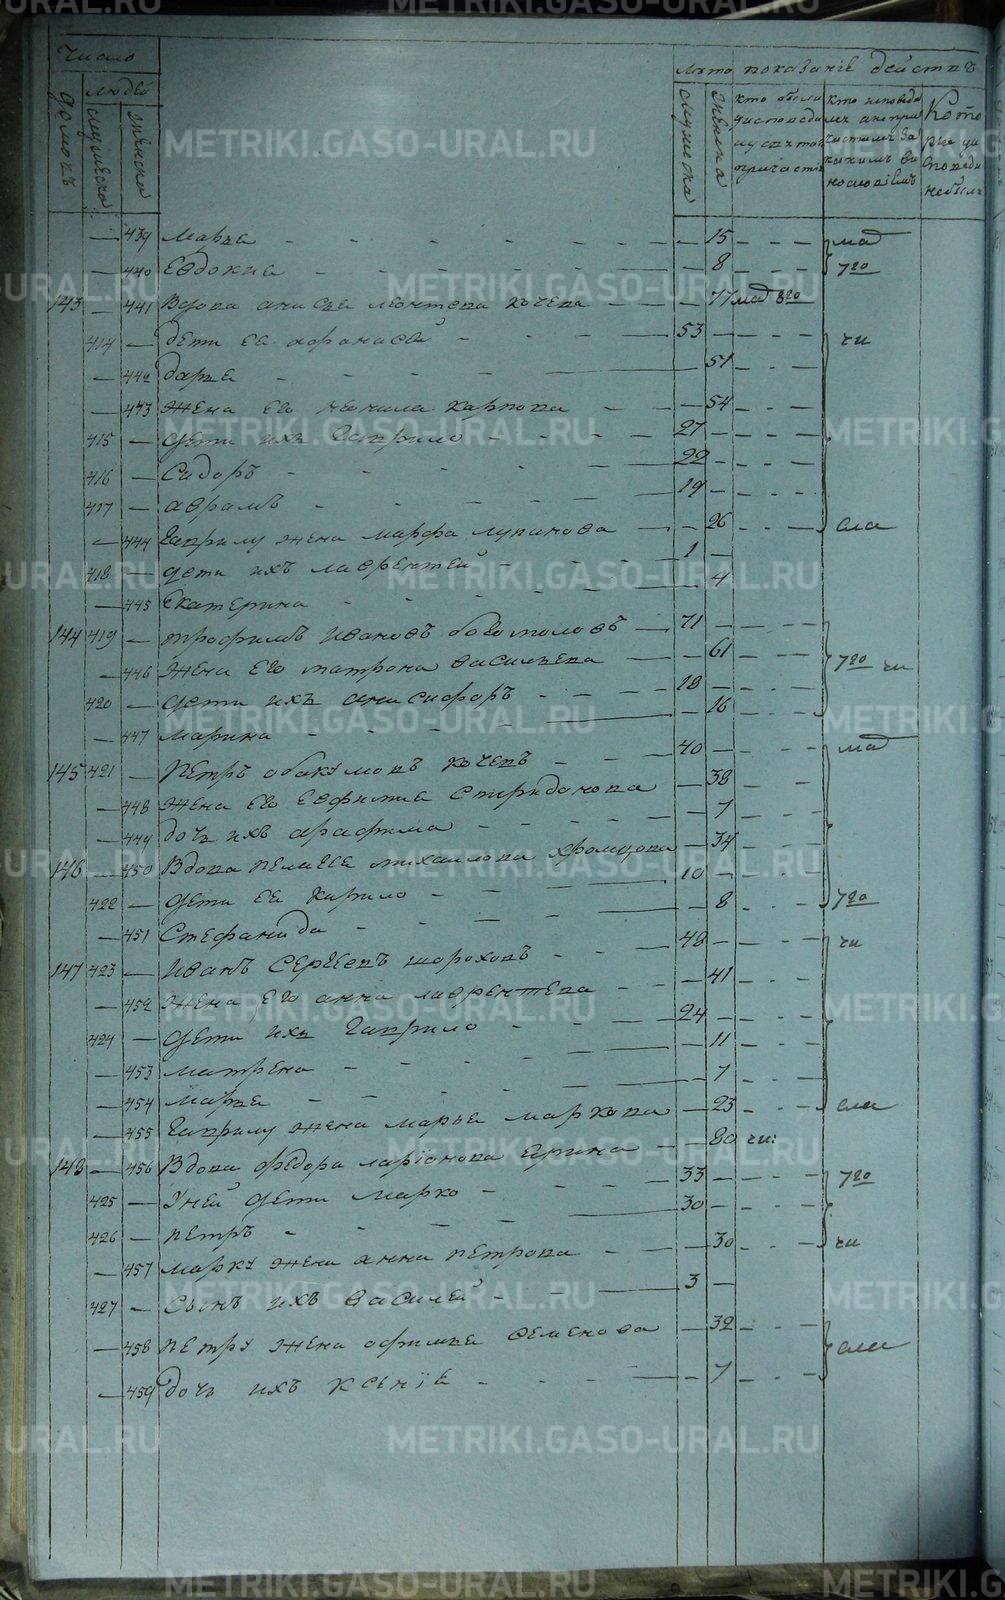 число
лѣто показанїе дейстпъ
домопъ
людей
мужеска
женска
мужеска
женска
кто были
кто исповеда
Кото
рые
небыли
— 439 Марѣа — 15 мад
— 440 Евдокиа — 8 720
143 — 441 Вдова анисьа леонтева кочева — 77 мад 820
414 — дети ее афанасей 53 — чи
— 442 дарьа — 51
— 443 жена его неонила карпопа — 54
415 — дети ихъ Гаврило 27 —
416 — Сидоръ 22 —
417 — аврамъ 19 —
— 444 Гаврилу жена марфа лупанова — 26 сла
418 — дети ихъ лаврентей 1 —
— 445 Екатерина — 4
144 419 — трофимъ Ивановъ богомоловъ 71 —
— 446 жена его матрона васильева — 61 720 чи
420 — дети ихъ анисифоръ 18 —
— 447 марина — 16
145 421 — Петръ обакумопъ кочевъ 40 — мад
— 448 жена его евфимиа Спиридонопа — 38
— 449 дочь ихъ арафима — 7
146 — 450 Вдова пелагеа михаилопа хромцопа — 34
422 — дети ее карило 10 —
— 451 Стефанида — 8 720
147 423 — Иванъ Сергеепъ шороховъ 48 — чи
— 452 жена его анна лаврентева — 41
424 — дети ихъ гаврило 24 —
— 453 матрена — 11
— 454 марьа — 7
— 455 Гаврилу жена марьа маркопа — 23 сла
148 — 456 Вдова федора ларіонова ерина — 80 чи
425 — У ней дети марко 33 — 720
426 — петръ 30 —
— 457 марку жена анна петрова — 30 чи
427 — сынъ ихъ василей 3 —
— 458 петру жена офимьа семенова — 32 сла
— 459 дочь ихъ ксенїа — 7
METRIKI.GASO-URAL.RU